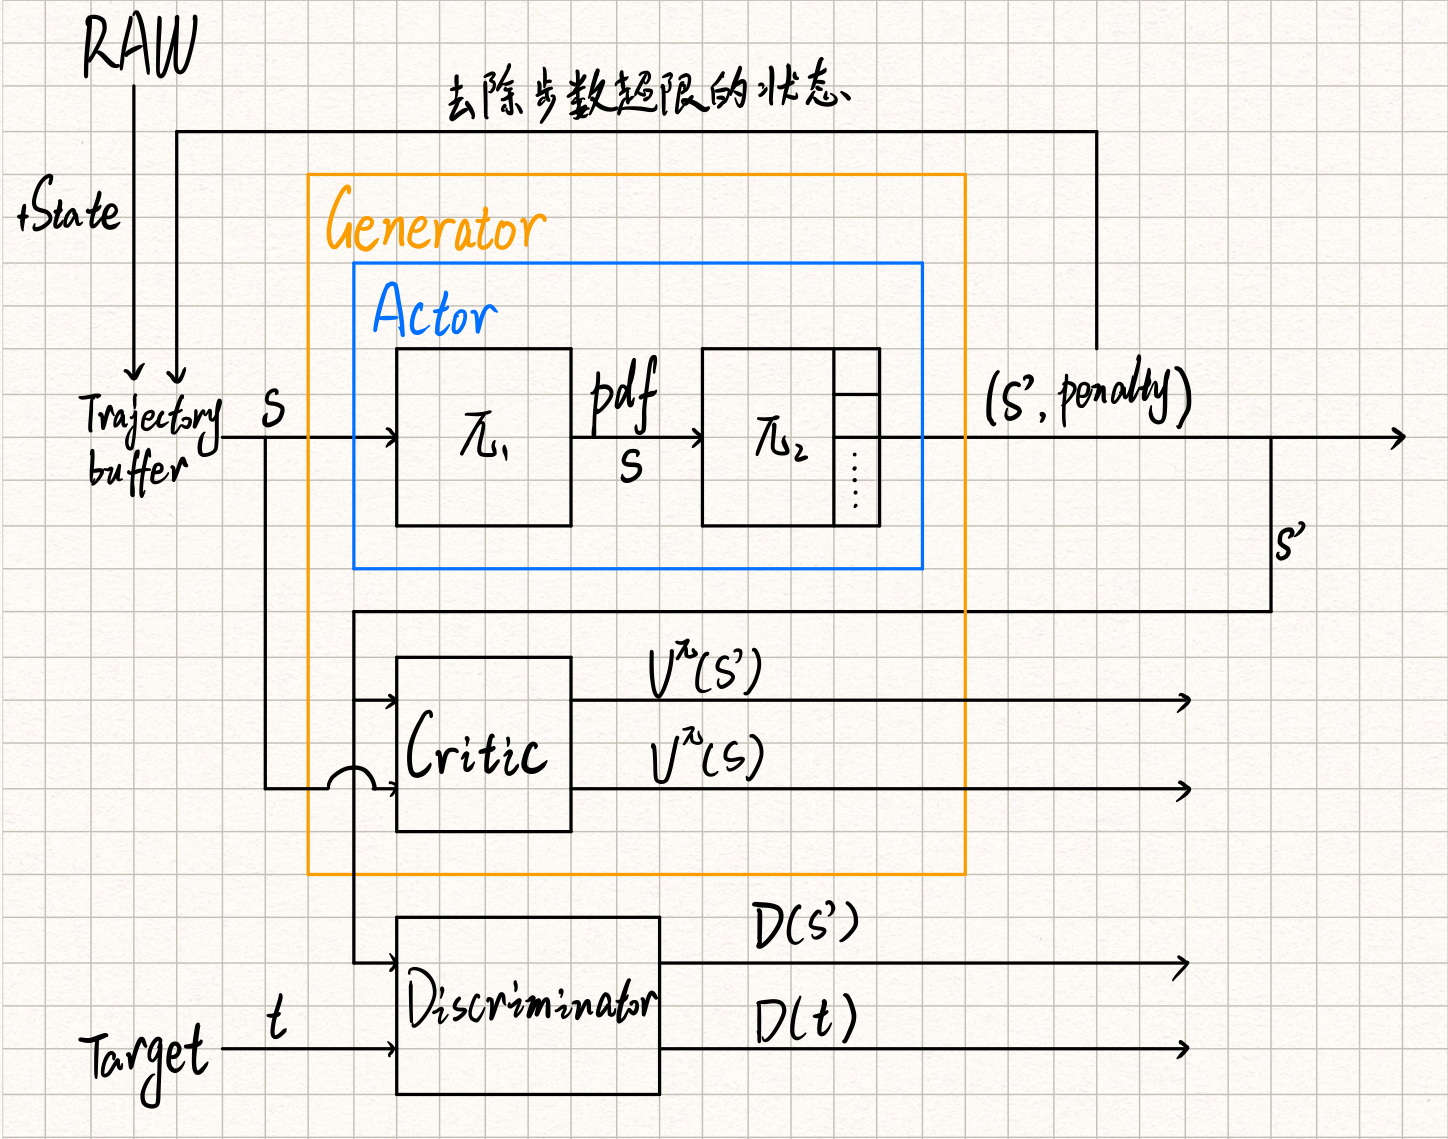 RAW
去除步数超限的状态、
+State
Generator
Actor
Trajectory
buffer
S
π₁
pdf
S
π₂
(S', penalty)
S'
Critic
V^π(S')
V^π(S)
Discriminator
D(S')
D(t)
Target
t